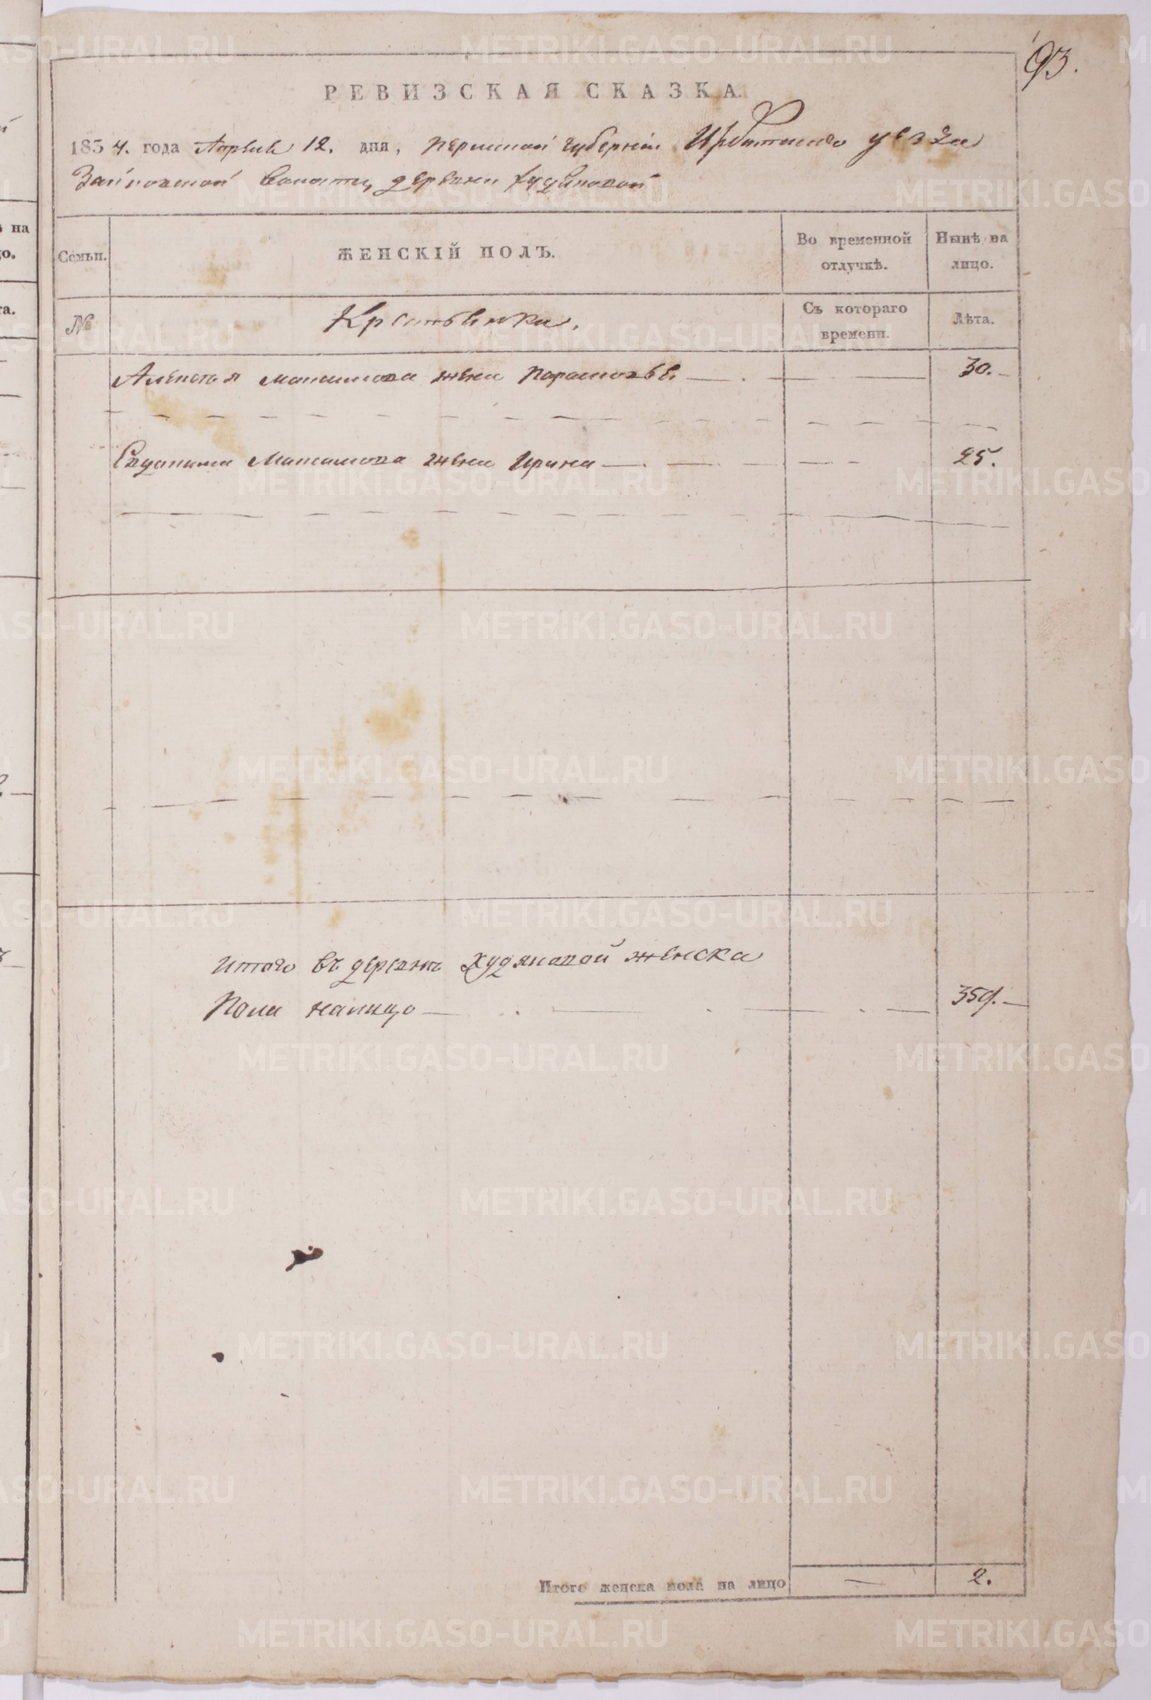 93.
РЕВИЗСКАЯ СКАЗКА.
1834. года Апреля 12. дня, Пермской губернiи Ирбитскаго уезда
Зайковской волости, деревни Худяковой
Семьи.
ЖЕНСКIЙ ПОЛЪ.
Во временной
отлучкѣ.
Нынѣ на
лицо.
№
Крестьянка.
Съ котораго
времени.
Лѣта.
Максимова жена Парасковья 30.
Максимова жена Ирина 25.
Итого въ деревнѣ Худяковой женска
Пола налицо 359.
Итого женска пола на лицо — 2.
ѣ на
цо.
та.
METRIKI.GASO-URAL.RU